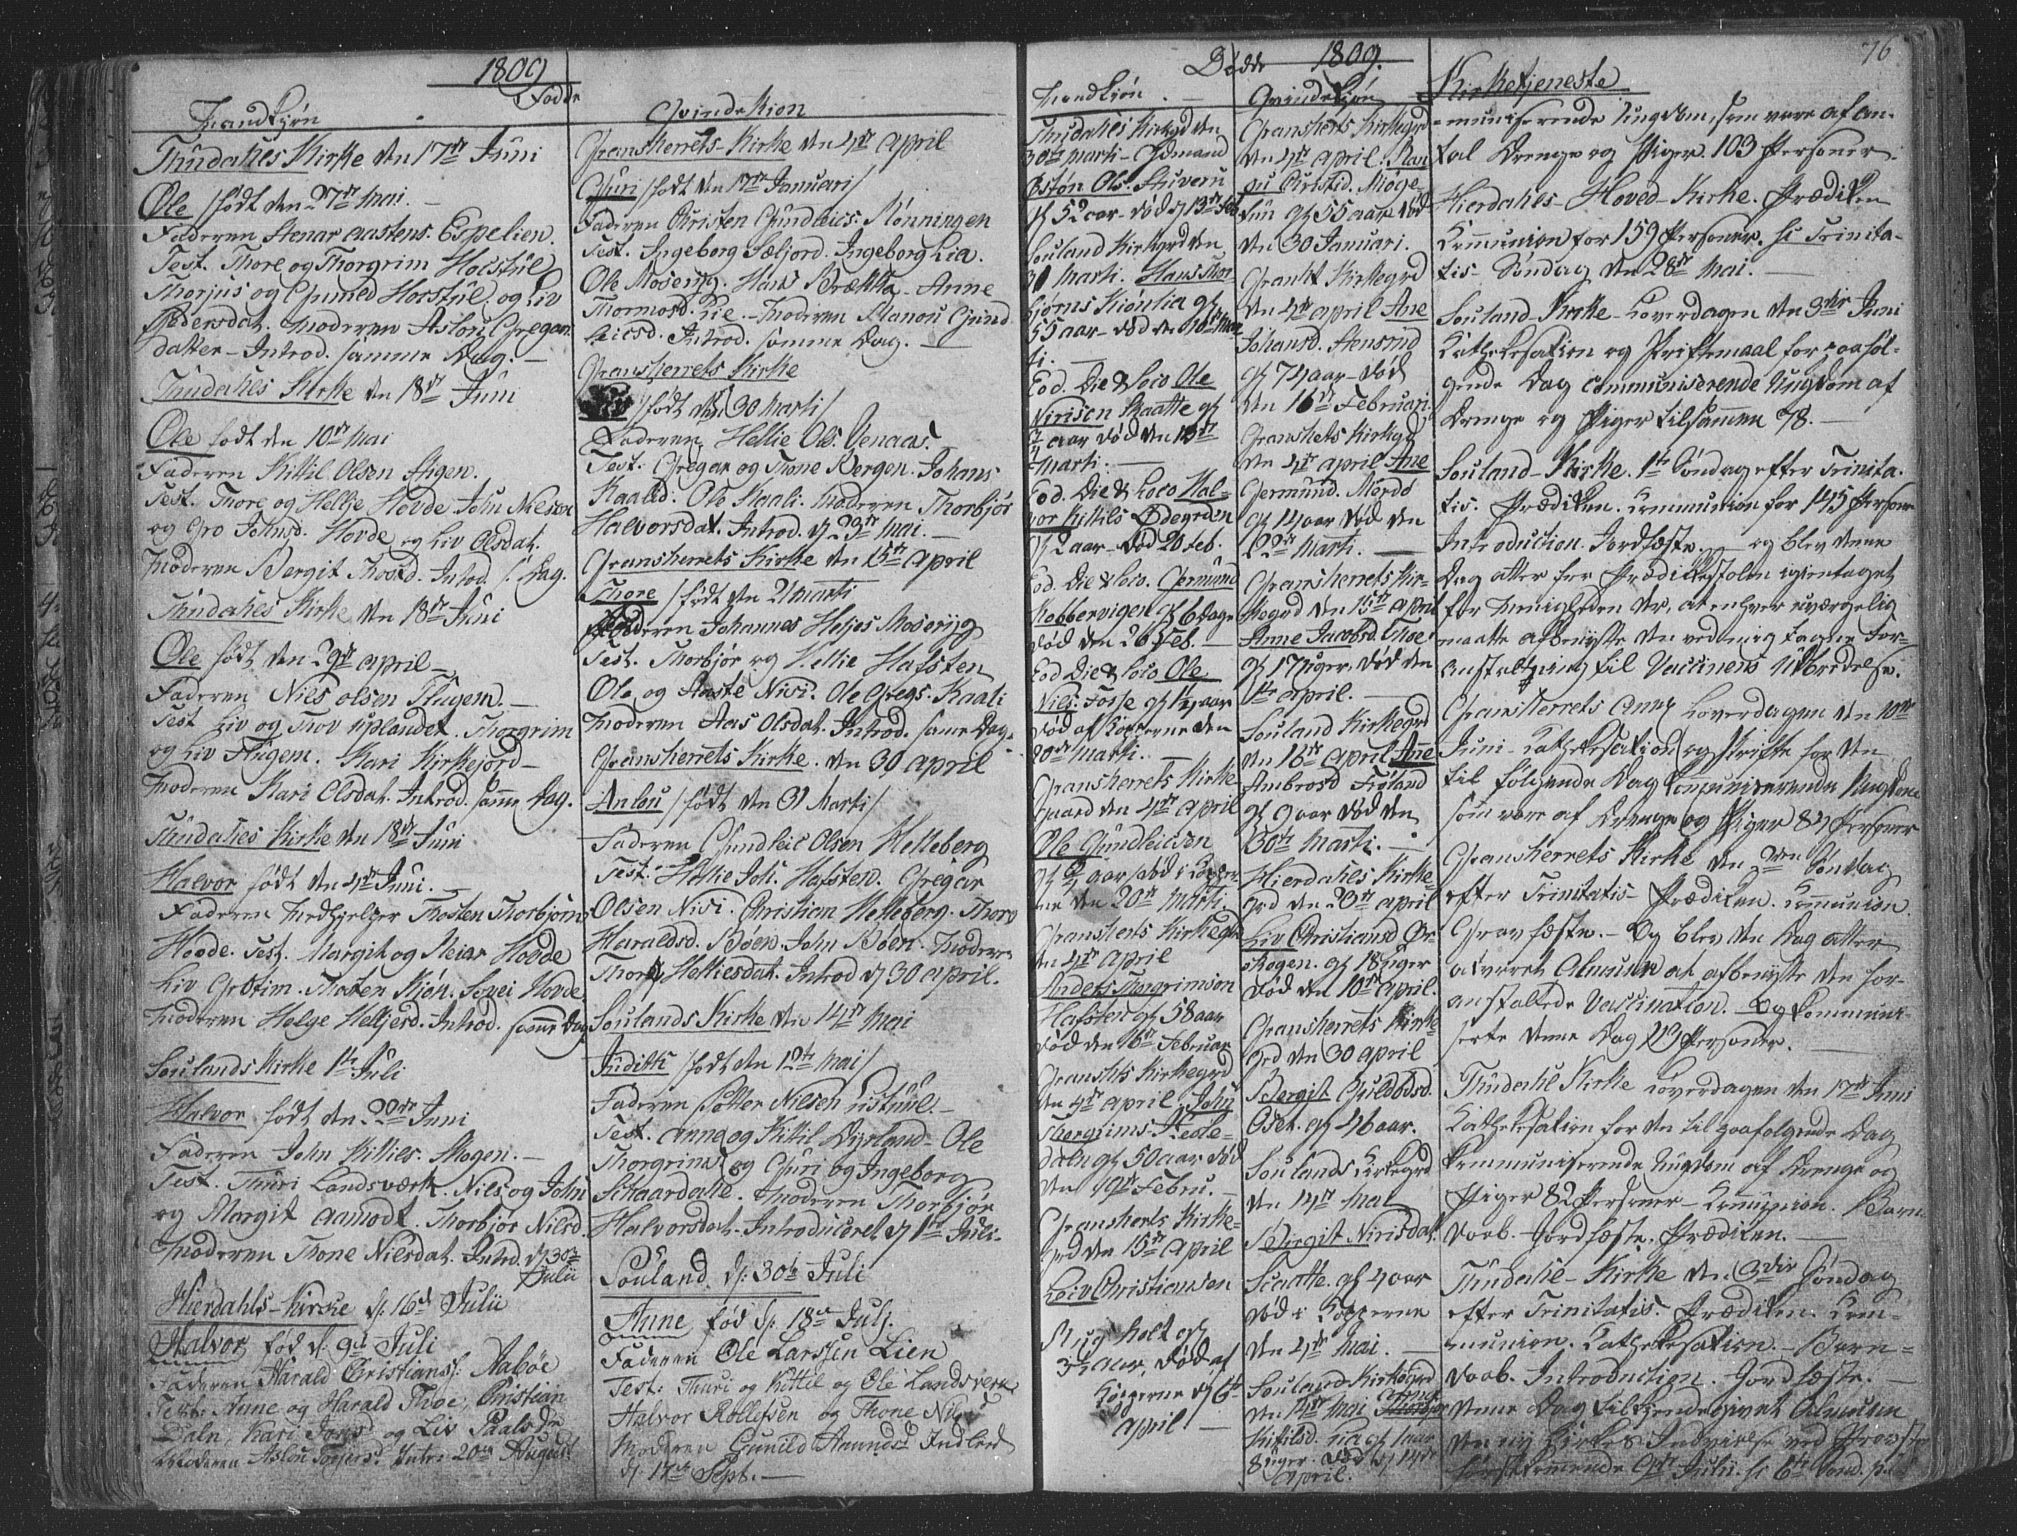 1809
Fødde
Mandkiøn
Thudahls Kirke den 17de Juni
Ole /født den 27de Mai.
Faderen Stenar Aastens. Espelien.
Test. Thore og Thorgrim Holstul
Thorjus og Gunild Horstul, og Liv
Pedersdat. Moderen Aslou Gregar
datter – Introd. samme Dag. –
Thudahls Kirke den 18de Juni
Ole født den 10de Mai
Faderen Kittil Olsen
Test. Thore og Hellje Hovde. John Nielsen
og Gro Johnsd. Hovde og Liv Olsdat.
Moderen Bergit Introd. s. Dag.
Thudahls Kirke den 18de Juni
Ole født den 29de April –
Faderen Nils Olsen Flugem. –
Test. Liv og Thov Uplandet. Thorgrim
og Liv Flugem. Kari Kirkejord –
Moderen Kari Olsdat. Introd. samme Dag.
Thudahls Kirke den 18de Juni
Halvor født den 4de Juni. –
Faderen Medhjelper Thosten Thorbjørns
Hovde. Test. Margit og Neiar Hovde
Liv Grotim. Thosten Kjøn. Sovei Hovde
Moderen Helge Helljesd. Introd. samme Dag
Soulands Kirke 1te Juli
Halvor født den 20de Juni
Faderen John Kittils. Mogen. –
Test. Thuri Landsverk. Nils og John
og Margit Aamodt. Thorbjør Nilsd.
Moderen Thone Nilsdat. Introd. d. 30te
Julii
Hierdahls-Kirke d. 16de Julii
Halvor fød d. 9de Juli
Faderen Harald Christians. Aabøe
Test: Anne og Harald Thoe, Christian
Daln, Kari Jonsd og Liv Paalsd
Moderen Aslou Torjersd. Intro. 20de August
Qvindekion
Gransherrets-Kirke den 4de April
Guri /født den 17de Januari/
Faderen Christen Gundleics. Rønningen
Test. Ingeborg Sæljord. Ingeborg Lia.
Ole Moseryg. Hans Brække. Anne
Thormosd. Lie. – Moderen Ranou Gund
leicsd. Introd. samme Dag. –
Gransherrets Kirke
/født den 30 Marti/
Faderen Hellie Ols. Jenaas.
Test. Gregar og Thone Bergen. Johans
Kaasd. Ole Kaali. Moderen Thorbjør
Halvorsdat. Introd. d. 23de Mai. –
Gransherrets Kirke den 15de April
Thore /født den 21 Marti
Faderen Johannes Heljes Moseryg
Test. Thorbjør og Hellie Hafsten
Ole og Aaste Nisi. Ole Gregs. Kaali
Moderen Aas Olsdat. Introd. same Dag.
Gransherrets Kirke. den 30 April
Anlou /født den 31 Marti/
Faderen Gundleic Olsen Helleberg
Test: Helie Joh. Hafsten. Gregar
Olsen Nisi. Christian Helleberg. Thore
Haraldsd. Bøen. John Bøen. Moderen
Thore Helliesdat. Introd d. 30 April.
Soulands Kirke den 14de Mai
Judith /født den 12te Mai/
Faderen Sotter Nilsen Ustuul. –
Test. Anne og Kittil Dysland. Ole
Thorgrims og Guri og Ingeborg
Schaardale. Moderen Thorbjør
Halvorsdat. Introduceret d. 1te Juli.
Souland. d. 30te Juli
Anne fød d. 18de Julj.
Faderen Ole Larssen Lien
Test: Thuri og Kittil og Ole Landsverk
Halvor Rollefsen og Thone Nilsd
Moderen Gunild Aamundsd Indled
d. 17de Sept. –
Døde 1809.
Mandkiøn
Thudahls Kirkegd den
30te Marti –
Østøn Ols. Stuveru
gl 52 aar – død d. 13de Feb
Souland Kirkegrd den
30 Marti. Hans Thor
bjørns Kiontia gl
55 aar – død den 10de Mar
ti. –
Eod. Die & Loco Ole
Nirisen Skaatte gl
aar død den 13de
Marti. –
Eod. Die & Loco Hal-
vor Kittils Ødegrden
gl 2 aar – død 20 Feb.
Eod. Die & Loco. Germund
Kobbervigen gl 6 Dage
død den 26 Feb. –
Eod Die & Loco Ole
Nils. Fosse gl 1½ aar
død af Kopperne den
20de Marti. –
Gransherrets Kirke
gaard den 4de April
Ole Gundleicsen
aar død i Kopper
ne den 20de Marti.
Gransherrets Kirkegrd
den 4de April
Anders Thorgrimson
Hafsten gl 58 aar
død den 16de Februar
Gransherrets Kirkegrd
den 4de April John
Thorgrims. Heste-
dalen gl 50 aar død
den 19de Febru. –
Gransherrets Kirke-
grd den 15de April
Leiv Christiansen
holt gl
3½ aar, død af
Kopperne d 6te
April –
Qvindekiøn
Gransherrets Kirkegrd
den 4de April. Ran
gl 55 aar død
den 30 Januari.
Gransht Kirkegrd
den 4de April Ane
Johansd. Stensrud
gl 74 aar – død
den 16de Februari.
Gransherrets Kirkegrd
den 4de April Ane
Germund. Mærdø
gl 14 aar død den
22de Marti. –
Gransherrets Kir-
kegrd den 15de April
Anne Jacobsd. Thoe
gl 17 uger. død den
1te April. –
Souland Kirkegrd
den 16de April Ane
Ambrosd Frøland
gl 9 aar død den
30te Marti. –
Hierdahls Kirke-
grd den 23de April
Liv Christiansd Ør-
skogen. gl 18 uger
død den 10de April.
Gransherrets Kirke-
grd den 30 April
Bergit Guldbdsd.
Oset. gl 46 aar.
Soulands Kirkegrd
den 14de Mai
Bergit Nirisdat.
Scaatte. gl 4 aar
død i Kopperne
den 4de Mai. –
Souland Kirkegrd
den 14de Mai
Kittilsd. Lia gl 1 aar
8 uger. død d. 14de
April.
76
Kirketjeneste
-muniserende Ungdom, som vare af An-
tal Drenge og Piger. 103 Personer.
Hierdahls-Hoved-Kirke. Prædiken
Communion for 159 Personer. Trinita-
tis-Søndag den 28de Mai. –
Souland-Kirke – Løverdagen den 3die Juni
Cathekesation og Skriftemaal for paaføl-
gende Dag communiserende Ungdom af
Drenge og Piger tilsammen 78. –
Souland-Kirke. 1te Søndag efter Trinita-
tis. Prædiken. Communion for 145 Personer
Introduction. Jordfæste. – og blev denne
Dag atter fra Prædikestolen igientaget
for Menigheden der, at enhver uværgelig
maatte afbenytte den ved mig tagne For-
anstaltning til Vaccinens Udbredelse.
Gransherrets Annx Løverdagen den 10de
Juni – Cathekesation og Skrifte for den
til følgende Dag communiserende Ungdom
som vare af Drenge og Piger 87 Personer
Gransherrets Kirke den 2den Søndag
efter Trinitatis – Prædiken. Communion.
Gravfæste. – Og blev den Dag atter
advaret Almuen at afbenytte den for-
anstaltede Vaccination. – Og kommuni-
serte denne Dag 113 Personer. –
Thudahl Kirke Løverdagen den 17de Juni
Cathekesation for den til paafølgende Dag
kommuniserende Ungdom af Drenge og
Piger 82 Personer – Communion. Barn
daab. Jordfæste. Prædiken. –
Thudahl-Kirke den 3die Søndag
efter Trinitatis. Prædiken. Com-
munion. Cathekesation. – Barn-
daab. Introduction. Jordfæste. –
denne Dag tilkiendegivet Almuen
den ny Kirkes Indvielse ved Provsten
førstkommende 9de Julii. 6te Sønd. p.